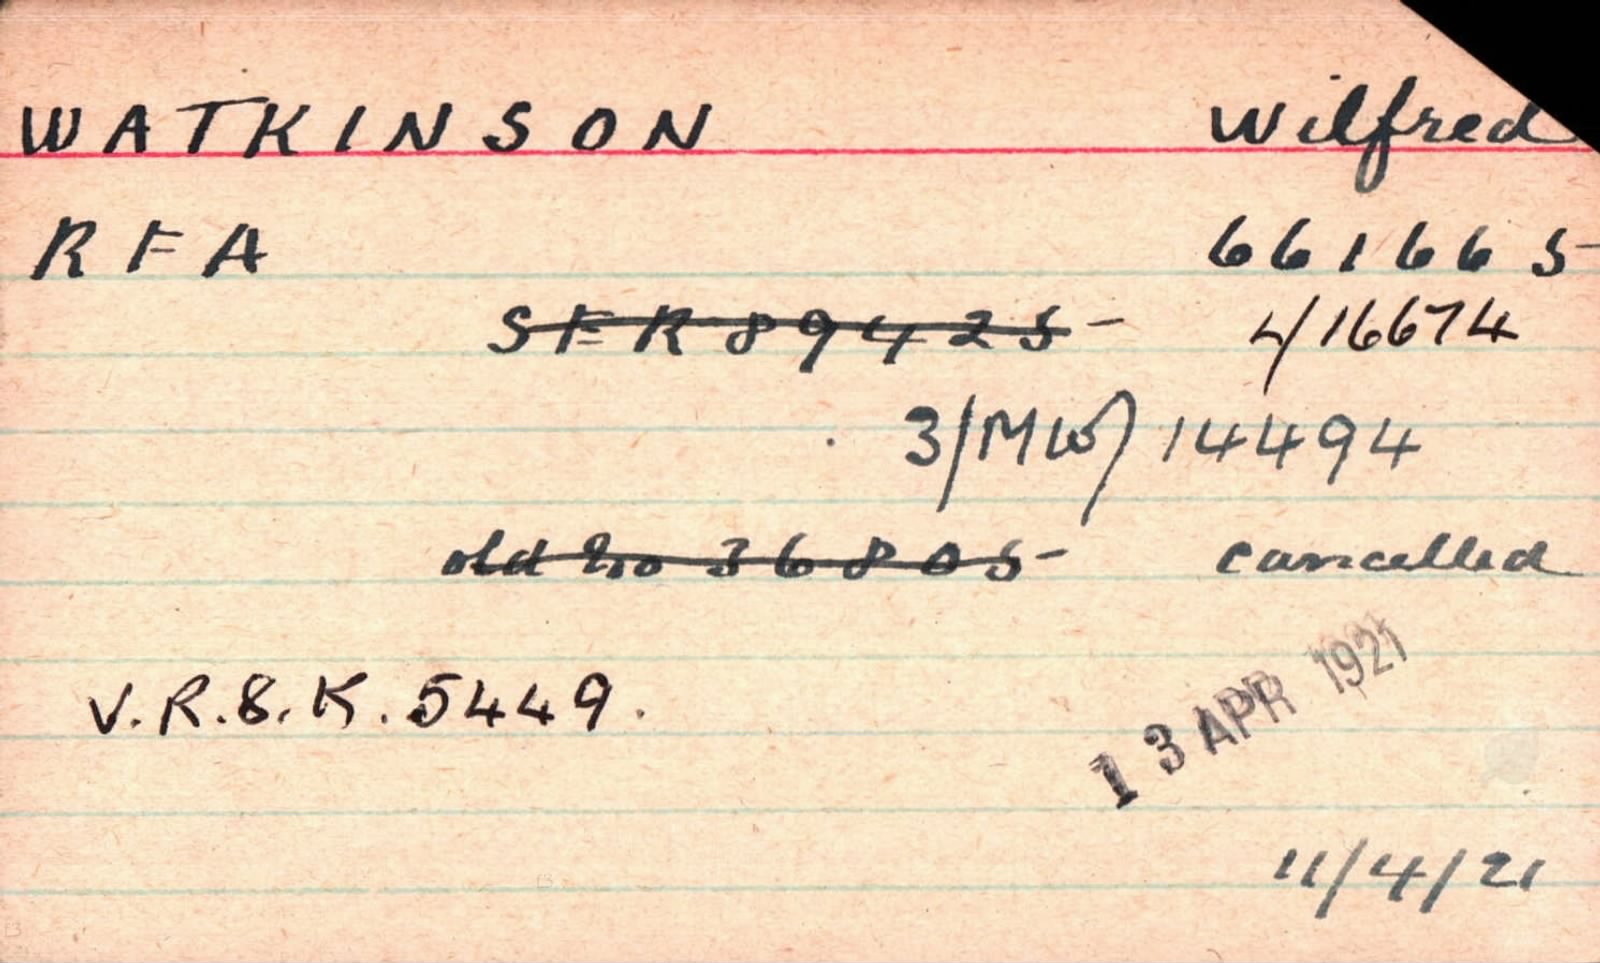 WATKINSON Wilfred
RFA 661665
SER 89425 4/16674
3/MW/14494
old No 36805 cancelled
13 APR 1921
V.R.&.K. 5449.
11/4/21